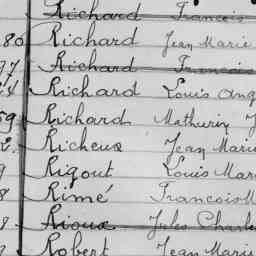 Richard François
86 Richard Jean Marie
97 Richard François
Richard Louis Ang
59 Richard Mathurin J
Richeux Jean Marie
9 Rigout Louis Mar
8 Rimé François M
9 Rioux Jules Charle
9 Robert Jean Marie